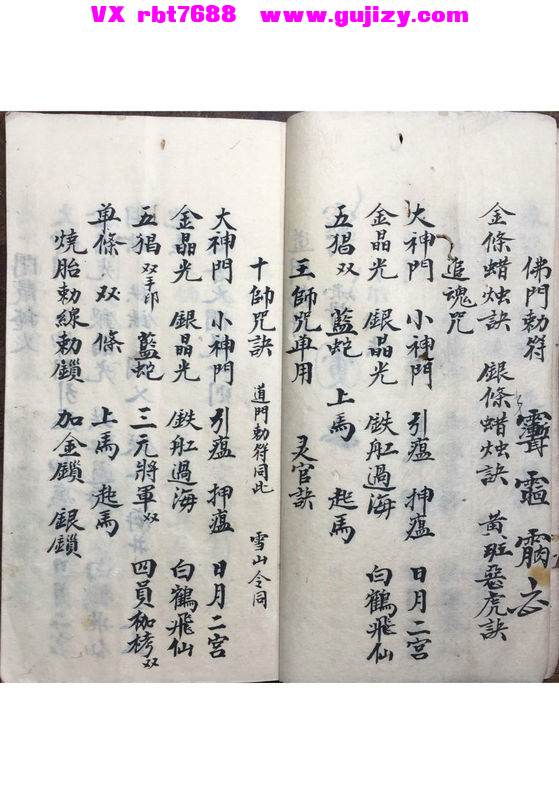 VX rbt7688 www.gujizy.com
佛門勅符
金條蜡烛訣 銀條蜡烛訣 黃班惡虎訣
追魂咒
大神門 小神門 引瘟 押瘟 日月二宮
金晶光 銀晶光 鉄舡過海 白鶴飛仙
五猖双 藍蛇 上馬 起馬
王師咒車用 灵官訣
十帥咒訣 道門勅符同此 雪山令同
大神門 小神門 引瘟 押瘟 日月二宮
金晶光 銀晶光 鉄舡過海 白鶴飛仙
五猖双手印 藍蛇 三元將軍双 四員枷栲双
单條 双條 上馬 起馬
燒胎勅線勅鎖 加金鎖 銀鎖